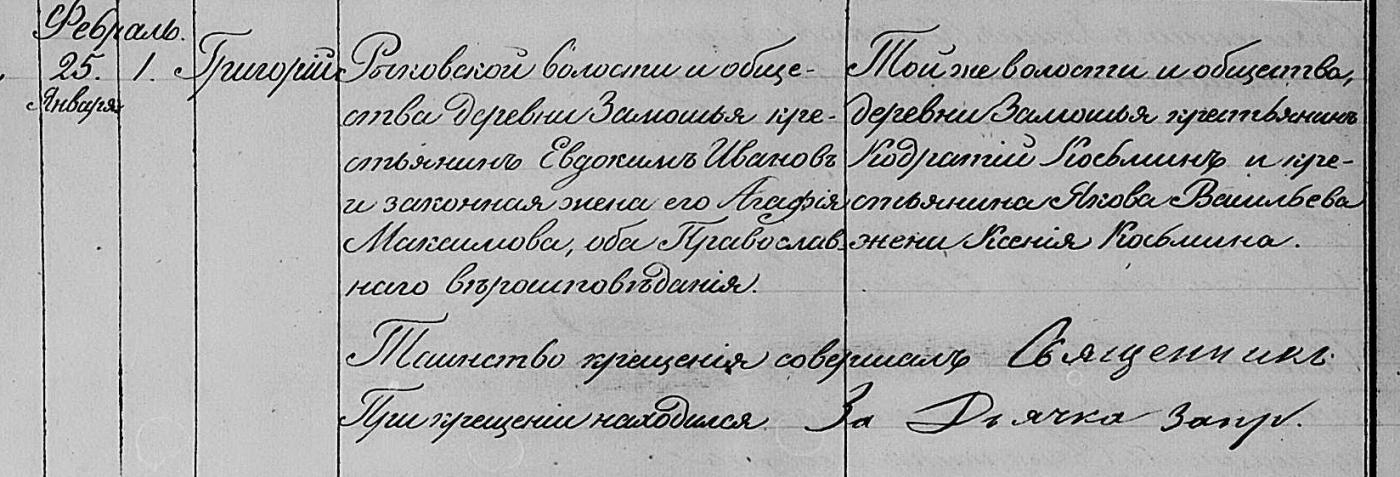 Февраль.
25. 1. Григорій Рыковской волости и обще- Той же волости и общества,
Января ства деревни Замошья кре- деревни Замошья крестьянинъ
стьянинъ Евдокимъ Ивановъ Кодратій Косьминъ и кре-
и законная жена его Агафія стьянина Якова Васильева
Максимова, оба Православ- жени Ксенія Косьмина.
наго вѣроисповѣданія.
Таинство крещенія совершалъ Священникъ
При крещеніи находился За Дьячка запр.